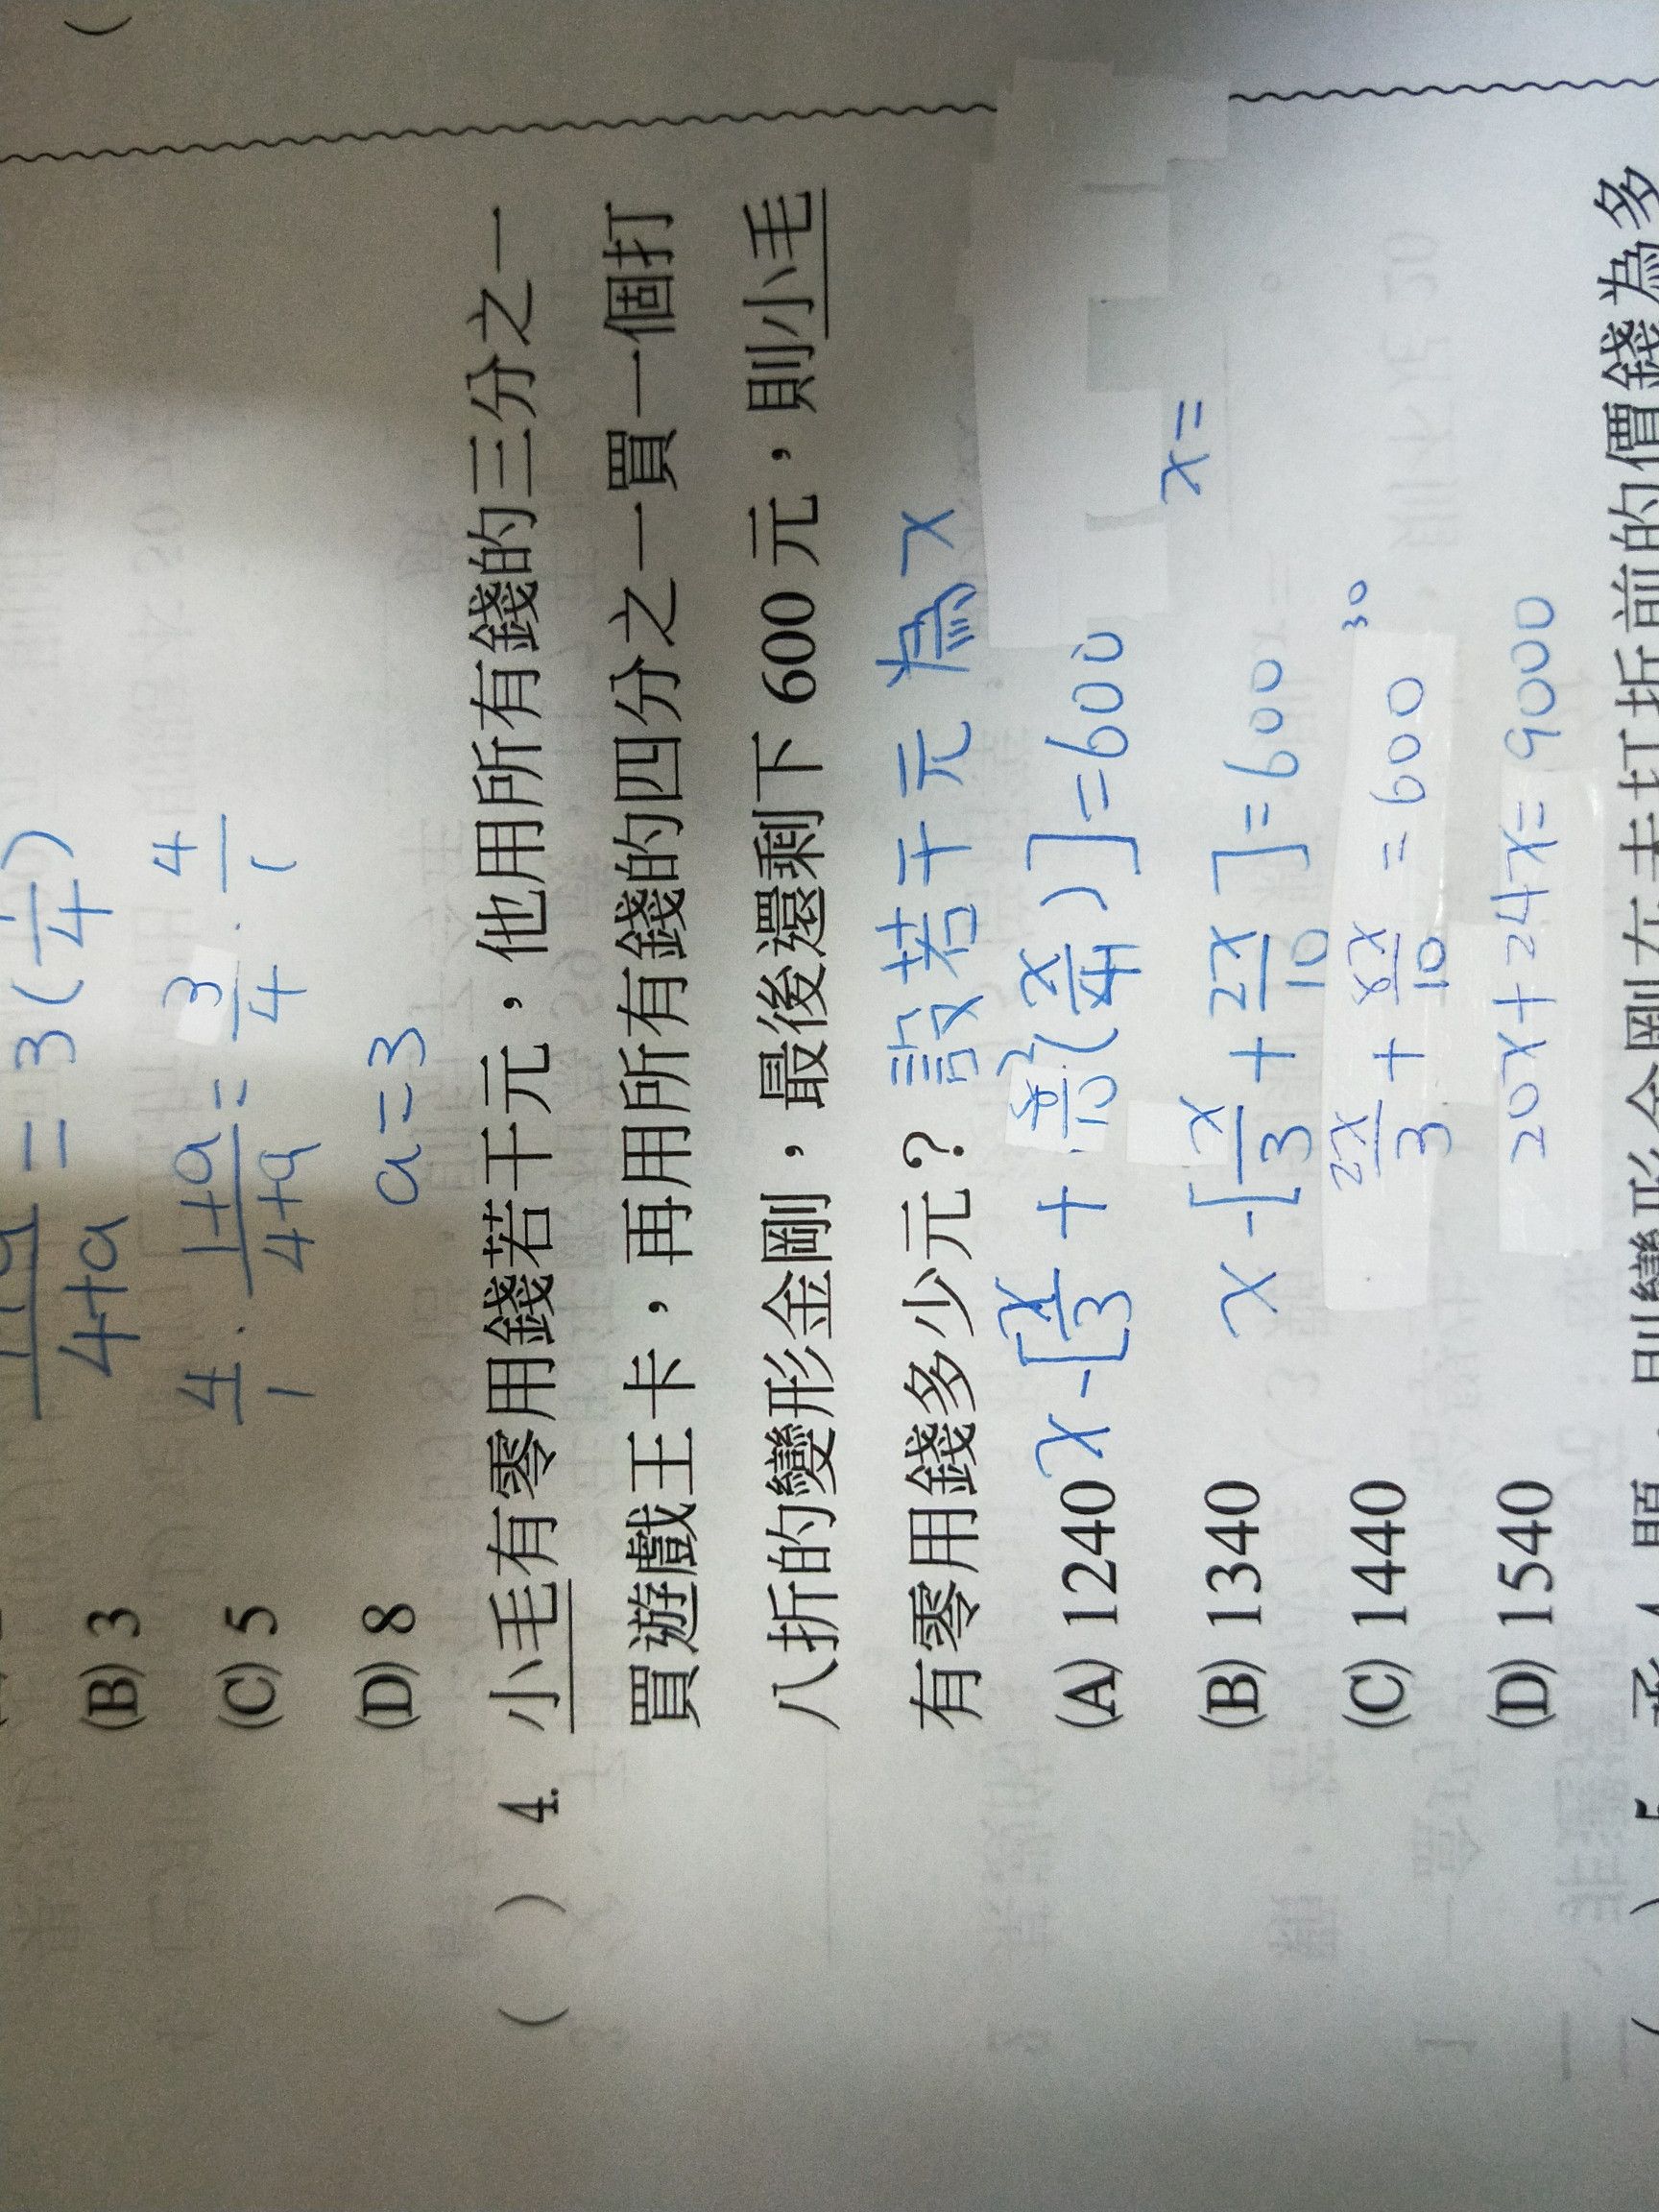 = 3(1/4)
4+a
(B) 3
4/1 · 1+a/4+a = 3/4 · 4/1
(C) 5
a=3
(D) 8
( ) 4. 小毛有零用錢若干元，他用所有錢的三分之一
買遊戲王卡，再用所有錢的四分之一買一個打
八折的變形金剛，最後還剩下 600 元，則小毛
有零用錢多少元？ 設若干元為x
(A) 1240 x-[x/3 + 8/10(x/4)]=600
x=
(B) 1340 x-[x/3 + 2x/10]=600
(C) 1440 2x/3 + 8x/10 = 600 30
(D) 1540 20x+24x=9000